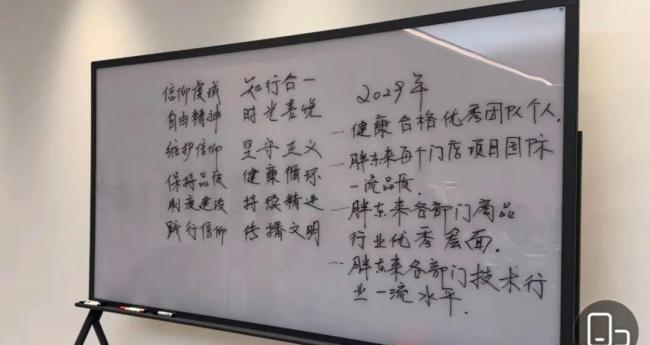 信仰虔诚 知行合一
自由精神 时光喜悦
维护信仰 坚守正义
保持品质 健康循环
制度建设 持续精进
践行信仰 传播文明
2029年
健康合格优秀团队个人.
胖东来每个门店项目国际
一流品质.
胖东来各部门商品
行业优秀层面.
胖东来各部门技术行
业一流水平.